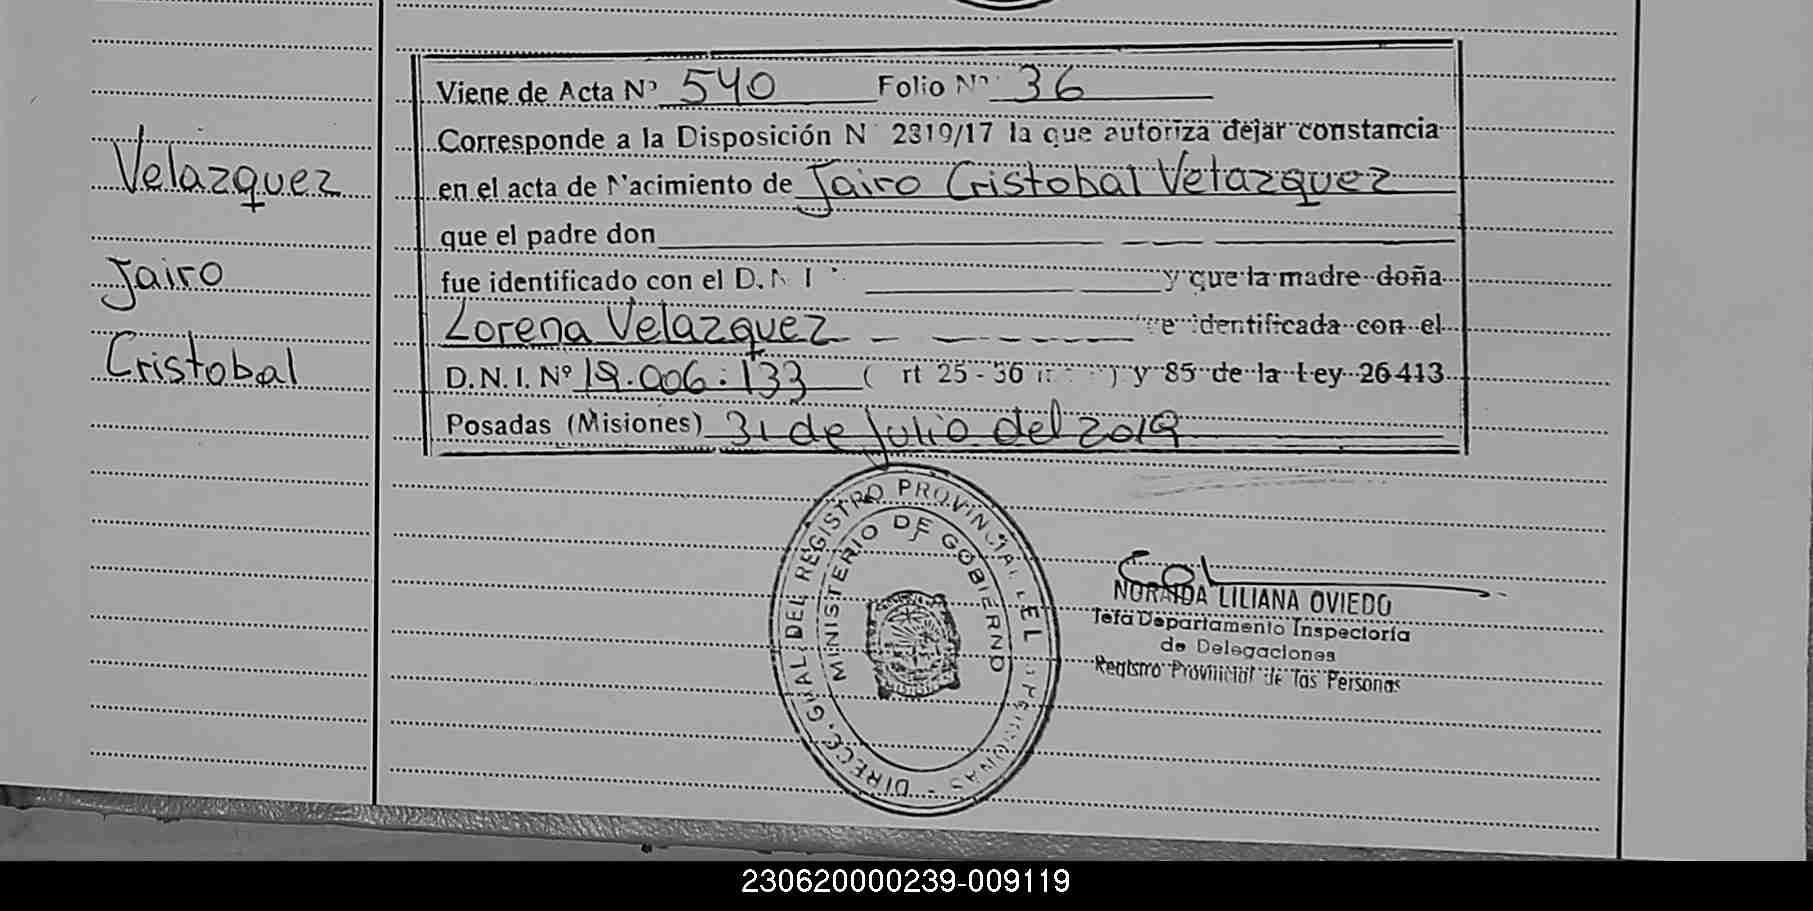 Velazquez
Jairo
Cristobal
Viene de Acta Nº 540 Folio Nº 36
Corresponde a la Disposición N 2319/17 la que autoriza dejar constancia
en el acta de Nacimiento de Jairo Cristobal Velazquez
que el padre don
fue identificado con el D.N.I. y que la madre doña
Lorena Velazquez identificada con el
D.N.I. Nº 19.006.133 ( rt 25 - 36 ) y 85 de la Ley 26413
Posadas (Misiones) 31 de Julio del 2019
DIRECC. GRAL. DEL REGISTRO PROVINCIAL DE
MINISTERIO DE GOBIERNO
NORAIDA LILIANA OVIEDO
Jefa Departamento Inspectoría
de Delegaciones
Registro Provincial de las Personas
230620000239-009119